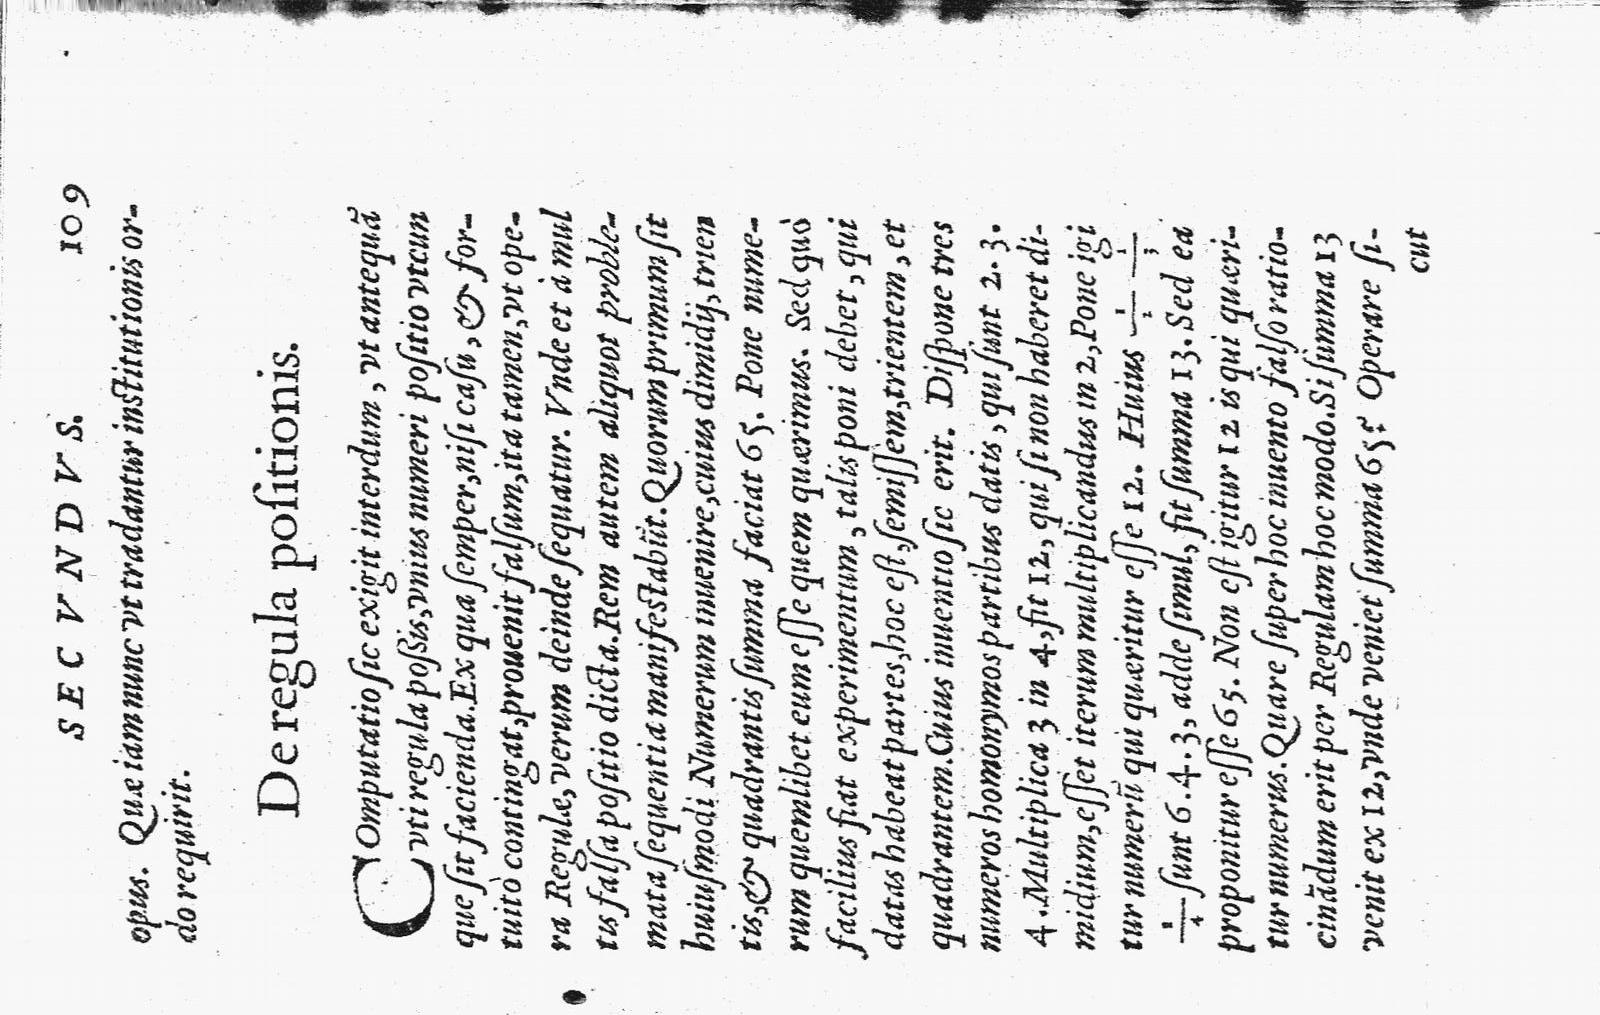 SECVNDVS. 109
opus. Quæ iam nunc vt tradantur institutionis or-
do requirit.
De regula poſitionis.
COmputatio ſic exigit interdum, vt antequā
vti regula poſsis, vnius numeri poſitio vtcun
que ſit facienda. Ex qua ſemper, niſi caſu, & for-
tuitò contingat, prouenit falſum, ita tamen, vt ope-
ra Regulæ, verum deinde ſequatur. Vnde et à mul
tis falſa poſitio dicta. Rem autem aliquot proble-
mata ſequentia manifestabūt. Quorum primum ſit
huiuſmodi Numerum inuenire, cuius dimidij, trien
tis, & quadrantis ſumma faciat 65. Pone nume-
rum quemlibet eum eſſe quem quærimus. Sed quò
facilius fiat experimentum, talis poni debet, qui
datas habeat partes, hoc eſt, ſemiſſem, trientem, et
quadrantem. Cuius inuentio ſic erit. Diſpone tres
numeros homonymos partibus datis, qui ſunt 2. 3.
4. Multiplica 3 in 4, fit 12, qui ſi non haberet di-
midium, eſſet iterum multiplicandus in 2, Pone igi
tur numerū qui quæritur eſſe 12. Huius 1/2 1/3
1/4 ſunt 6. 4. 3, adde ſimul, fit ſumma 13. Sed ea
proponitur eſſe 65. Non eſt igitur 12 is qui quæri-
tur numerus. Quare ſuper hoc inuento falſo ratio-
cinādum erit per Regulam hoc modo. Si ſumma 13
venit ex 12, vnde veniet ſumma 65? Operare ſi-
cut